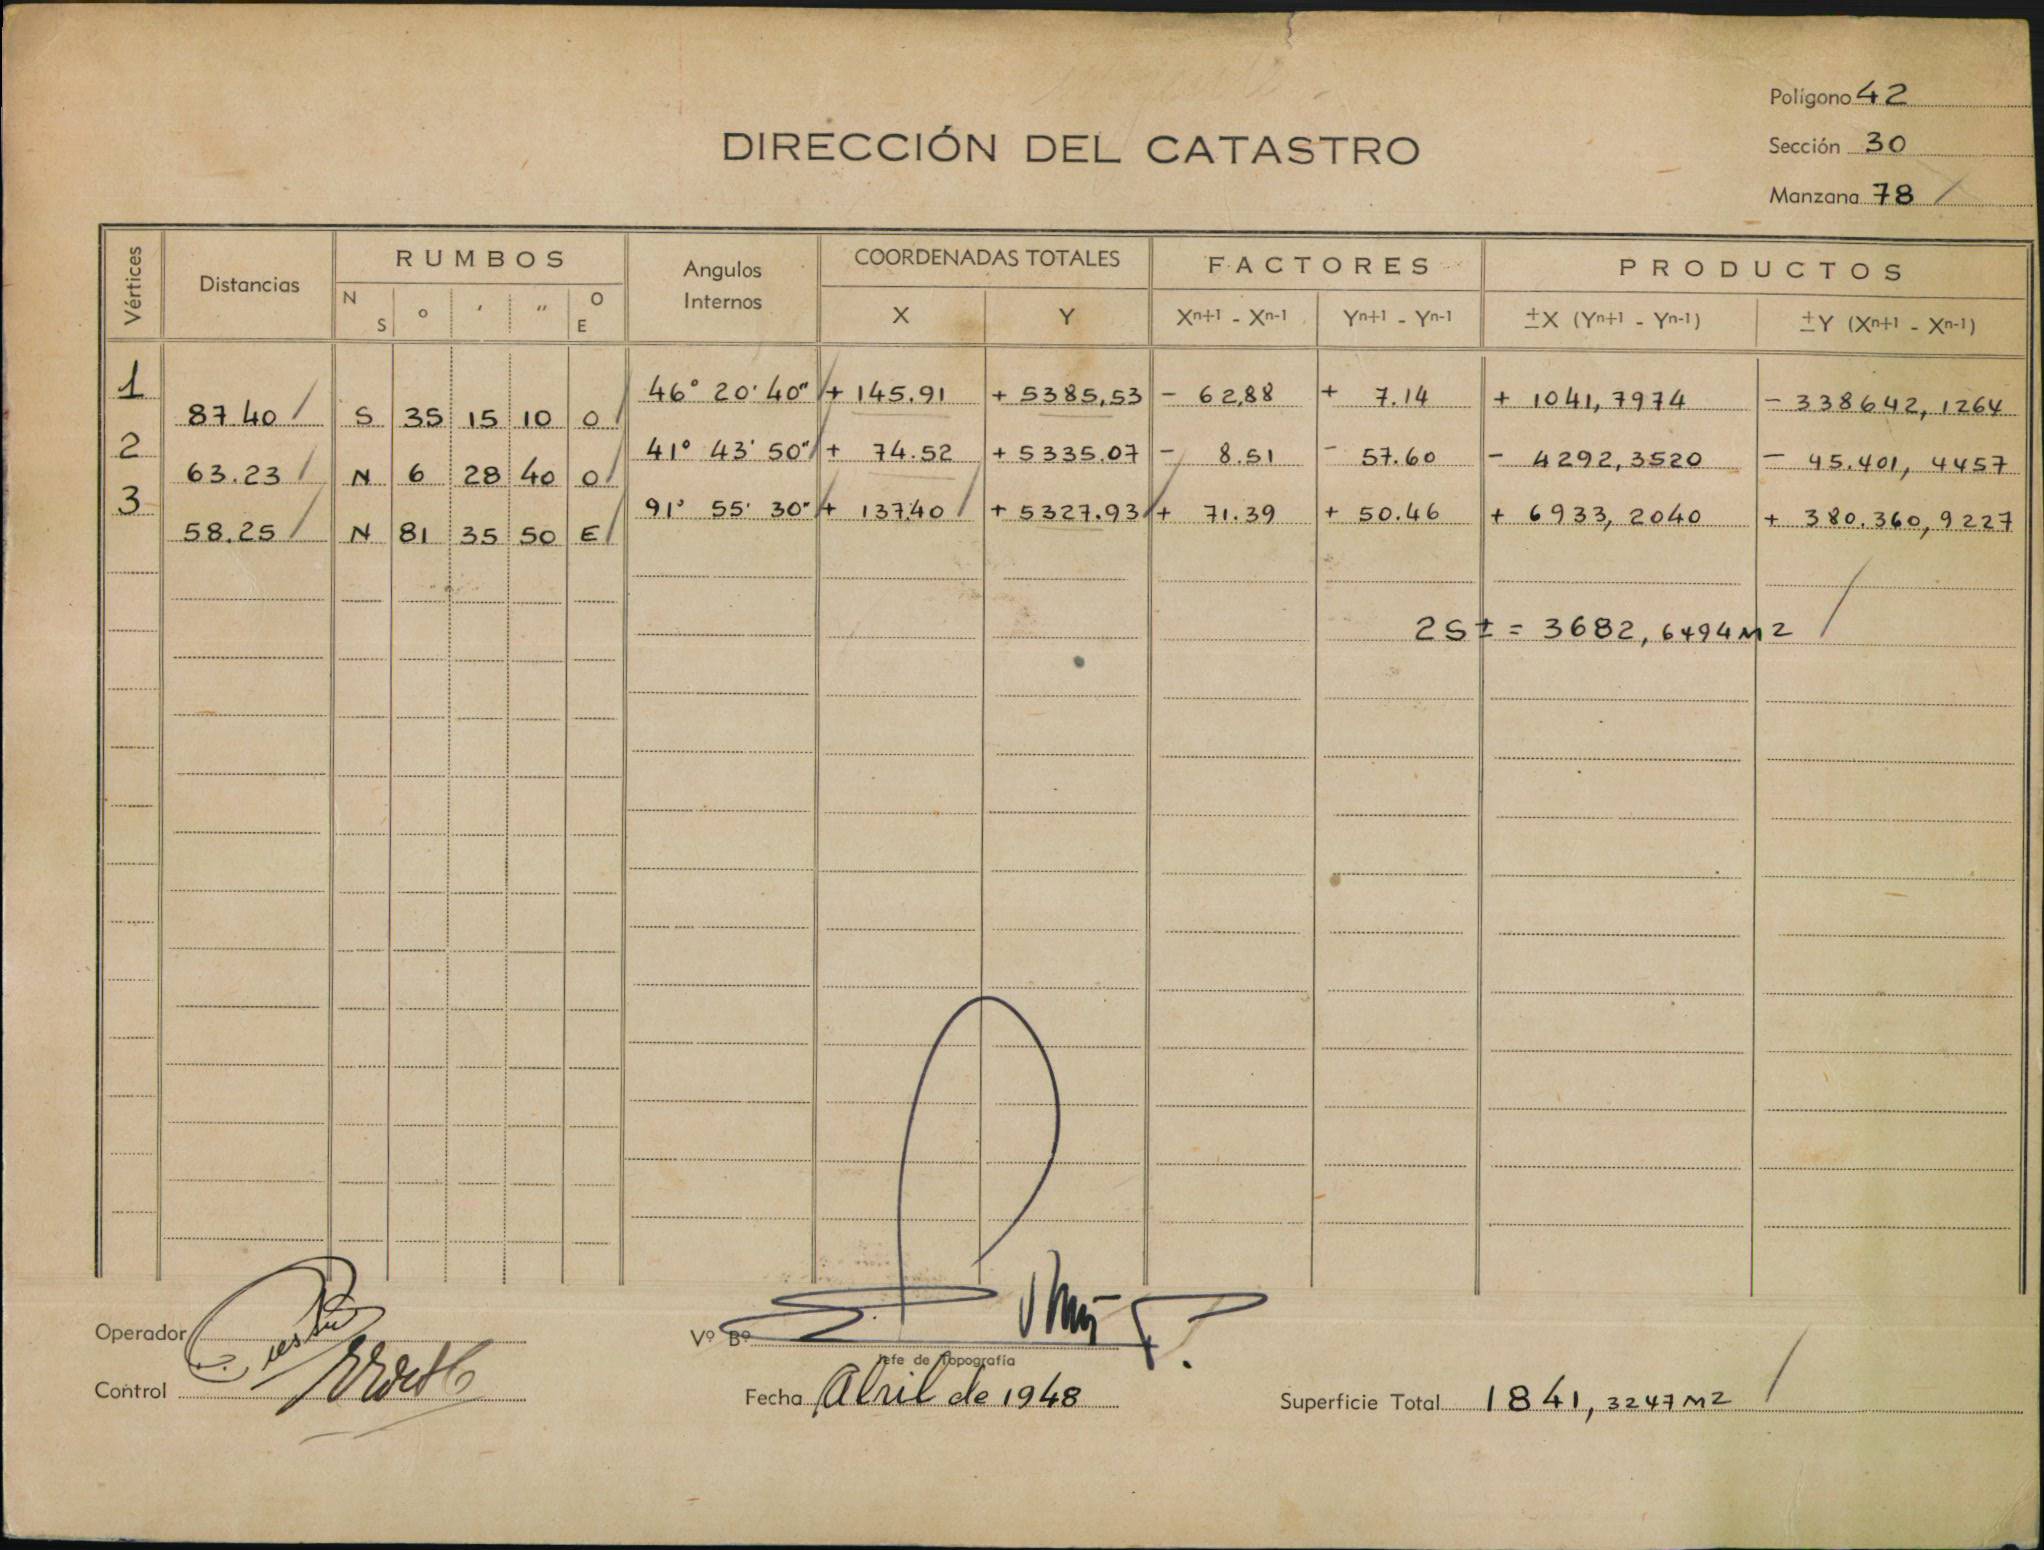 Polígono 42
DIRECCIÓN DEL CATASTRO
Sección 30
Manzana 78 /
Vértices Distancias RUMBOS Angulos Internos COORDENADAS TOTALES FACTORES PRODUCTOS
N S o ′ ″ O E X Y Xn+1 - Xn-1 Yn+1 - Yn-1 ±X (Yn+1 - Yn-1) ±Y (Xn+1 - Xn-1)
1 46° 20' 40" + 145.91 + 5385,53 - 62,88 + 7.14 + 1041,7974 - 338642,1264
87.40 / S 35 15 10 O /
2 41° 43' 50" + 74.52 + 5335.07 - 8.51 - 57.60 - 4292,3520 - 45.401,4457
63.23 / N 6 28 40 O /
3 91° 55' 30" + 137.40 / + 5327.93 + 71.39 + 50.46 + 6933,2040 + 380.360,9227
58.25 / N 81 35 50 E /
2S± = 3682,6494 M2 /
Operador
Vº Bº
Jefe de Topografía
Control
Fecha Abril de 1948
Superficie Total 1841,3247 M2 /